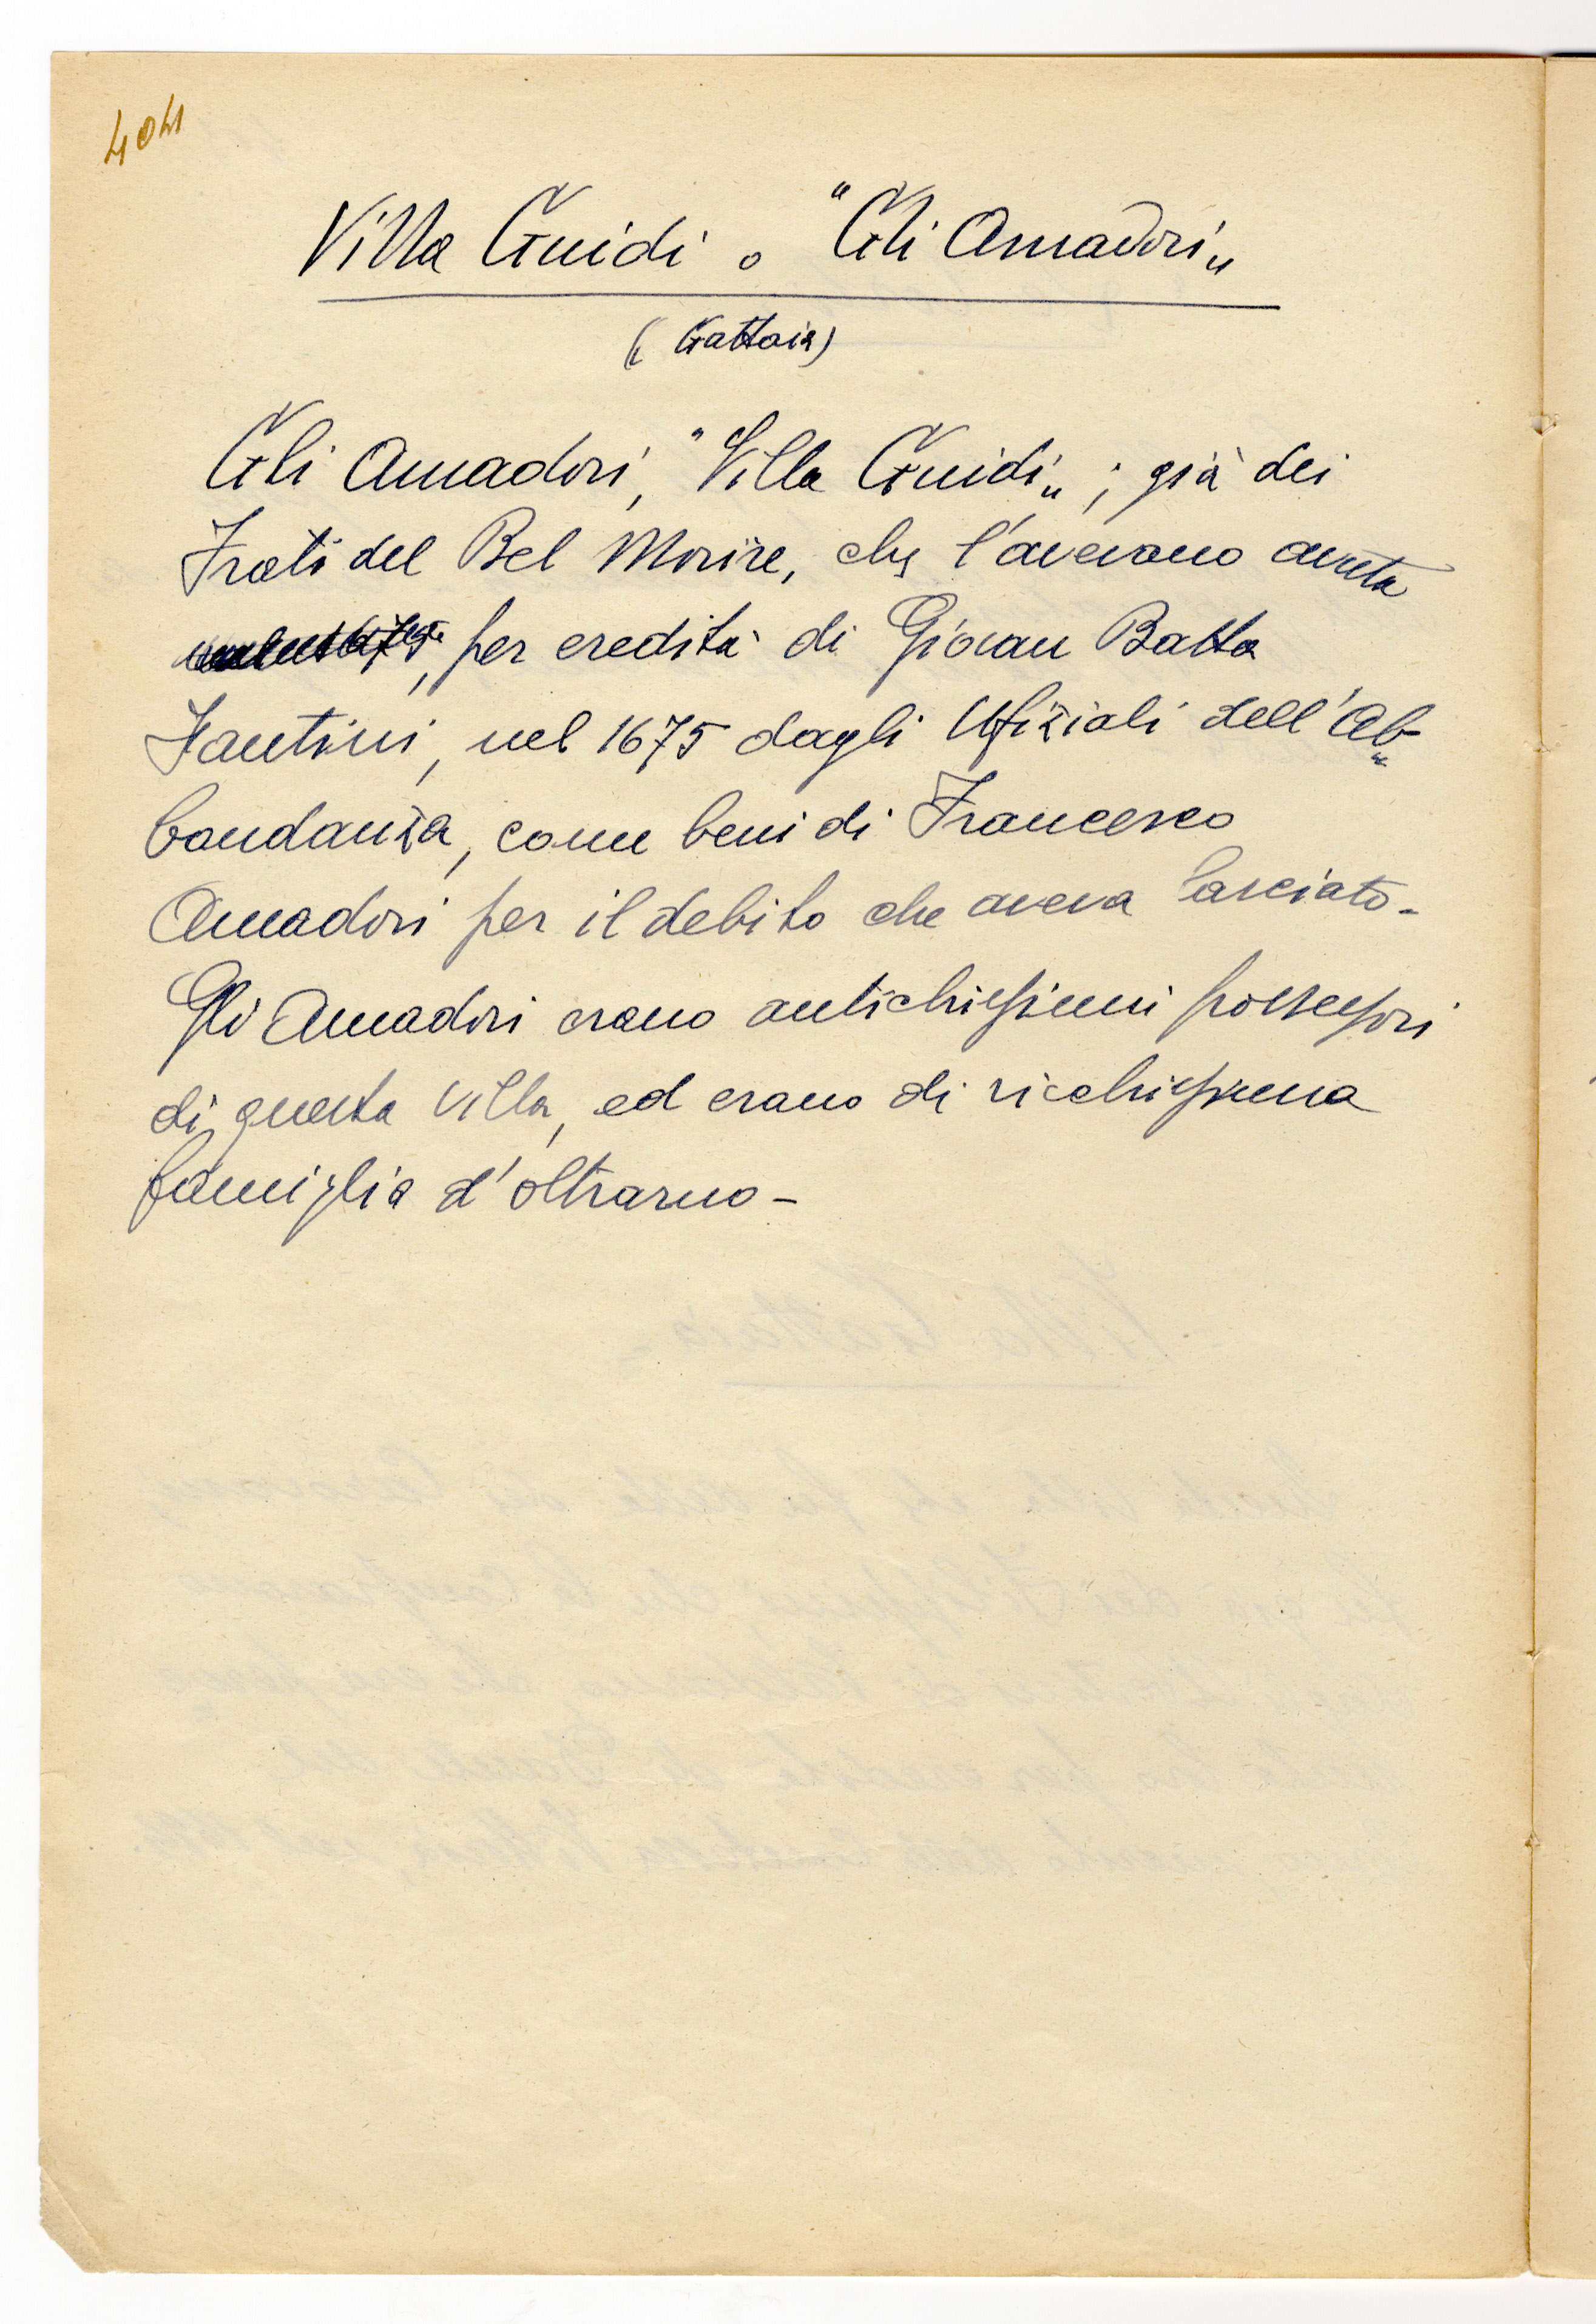 404
Villa Guidi o "Gli Amadori„
(Gattaia)
Gli Amadori, "Villa Guidi„; già dei
Frati del Bel Morire, che l'avevano avuta
, per eredità di Giovan Batta
Fantini, nel 1675 dagli Ufiziali dell'Ab„
bondanza, come beni di Francesco
Amadori per il debito che aveva lasciato-
Gli Amadori erano antichissimi possessori
di questa villa, ed erano di ricchissima
famiglia d'oltrarno-